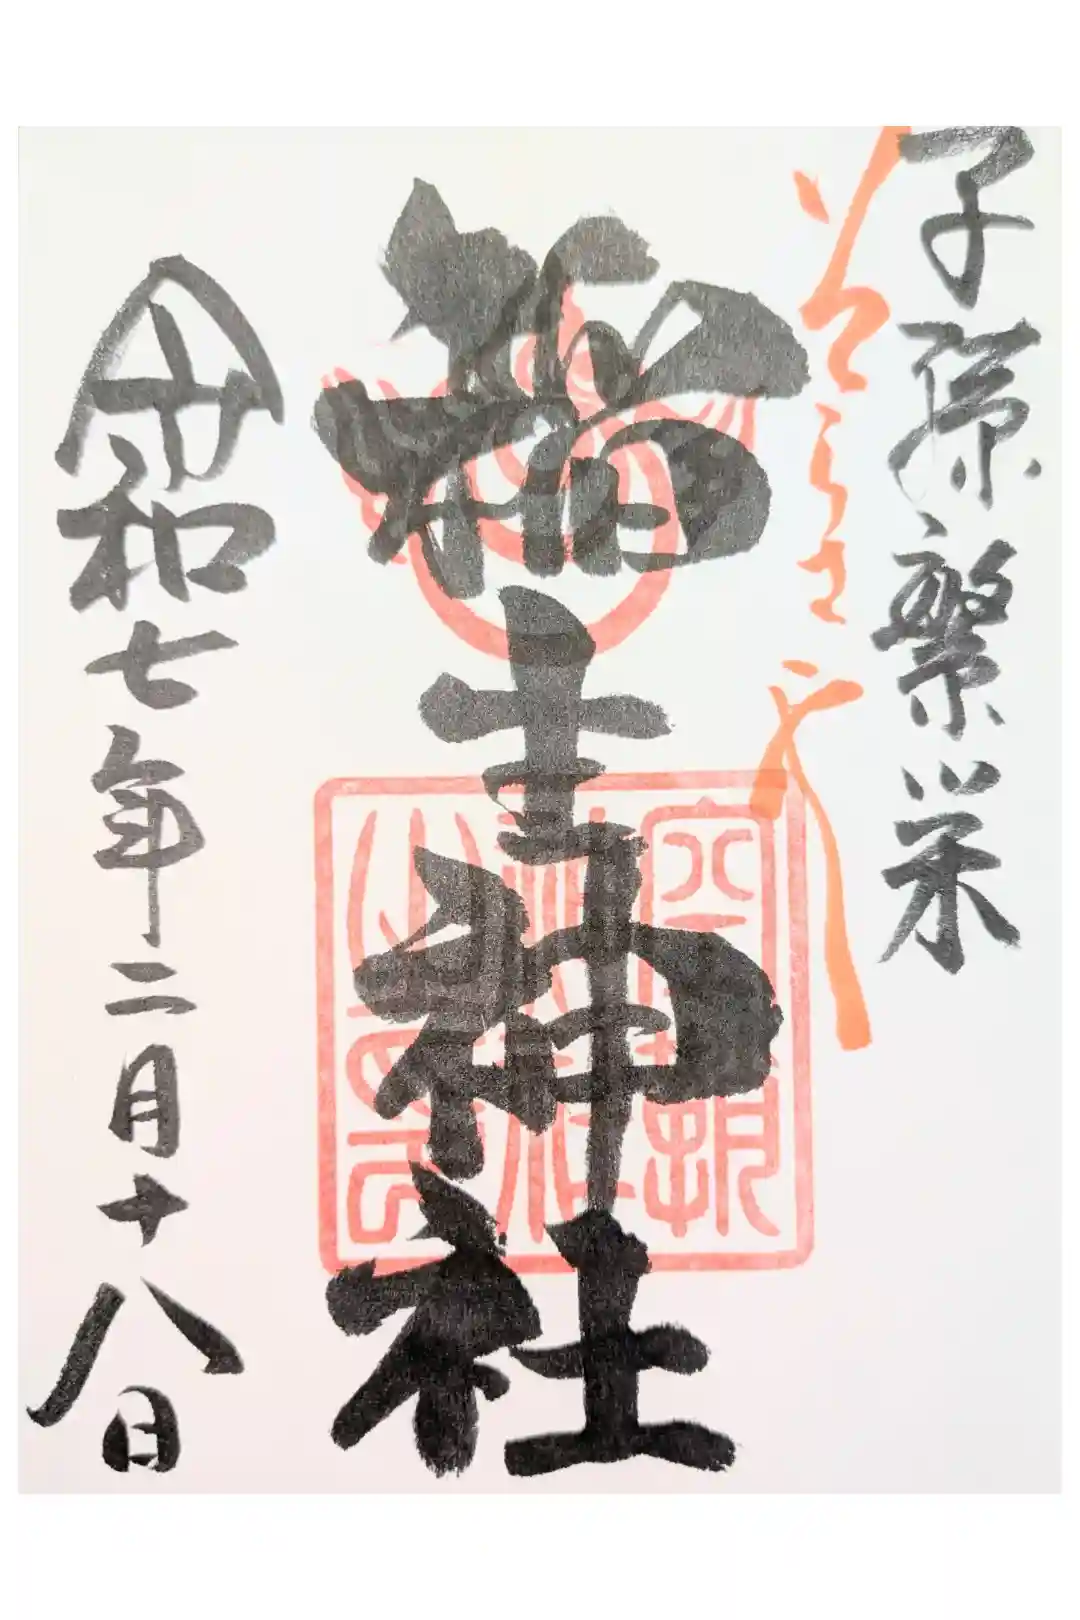 子孫繁栄
そらさや
稲生神社
令和七年二月十八日